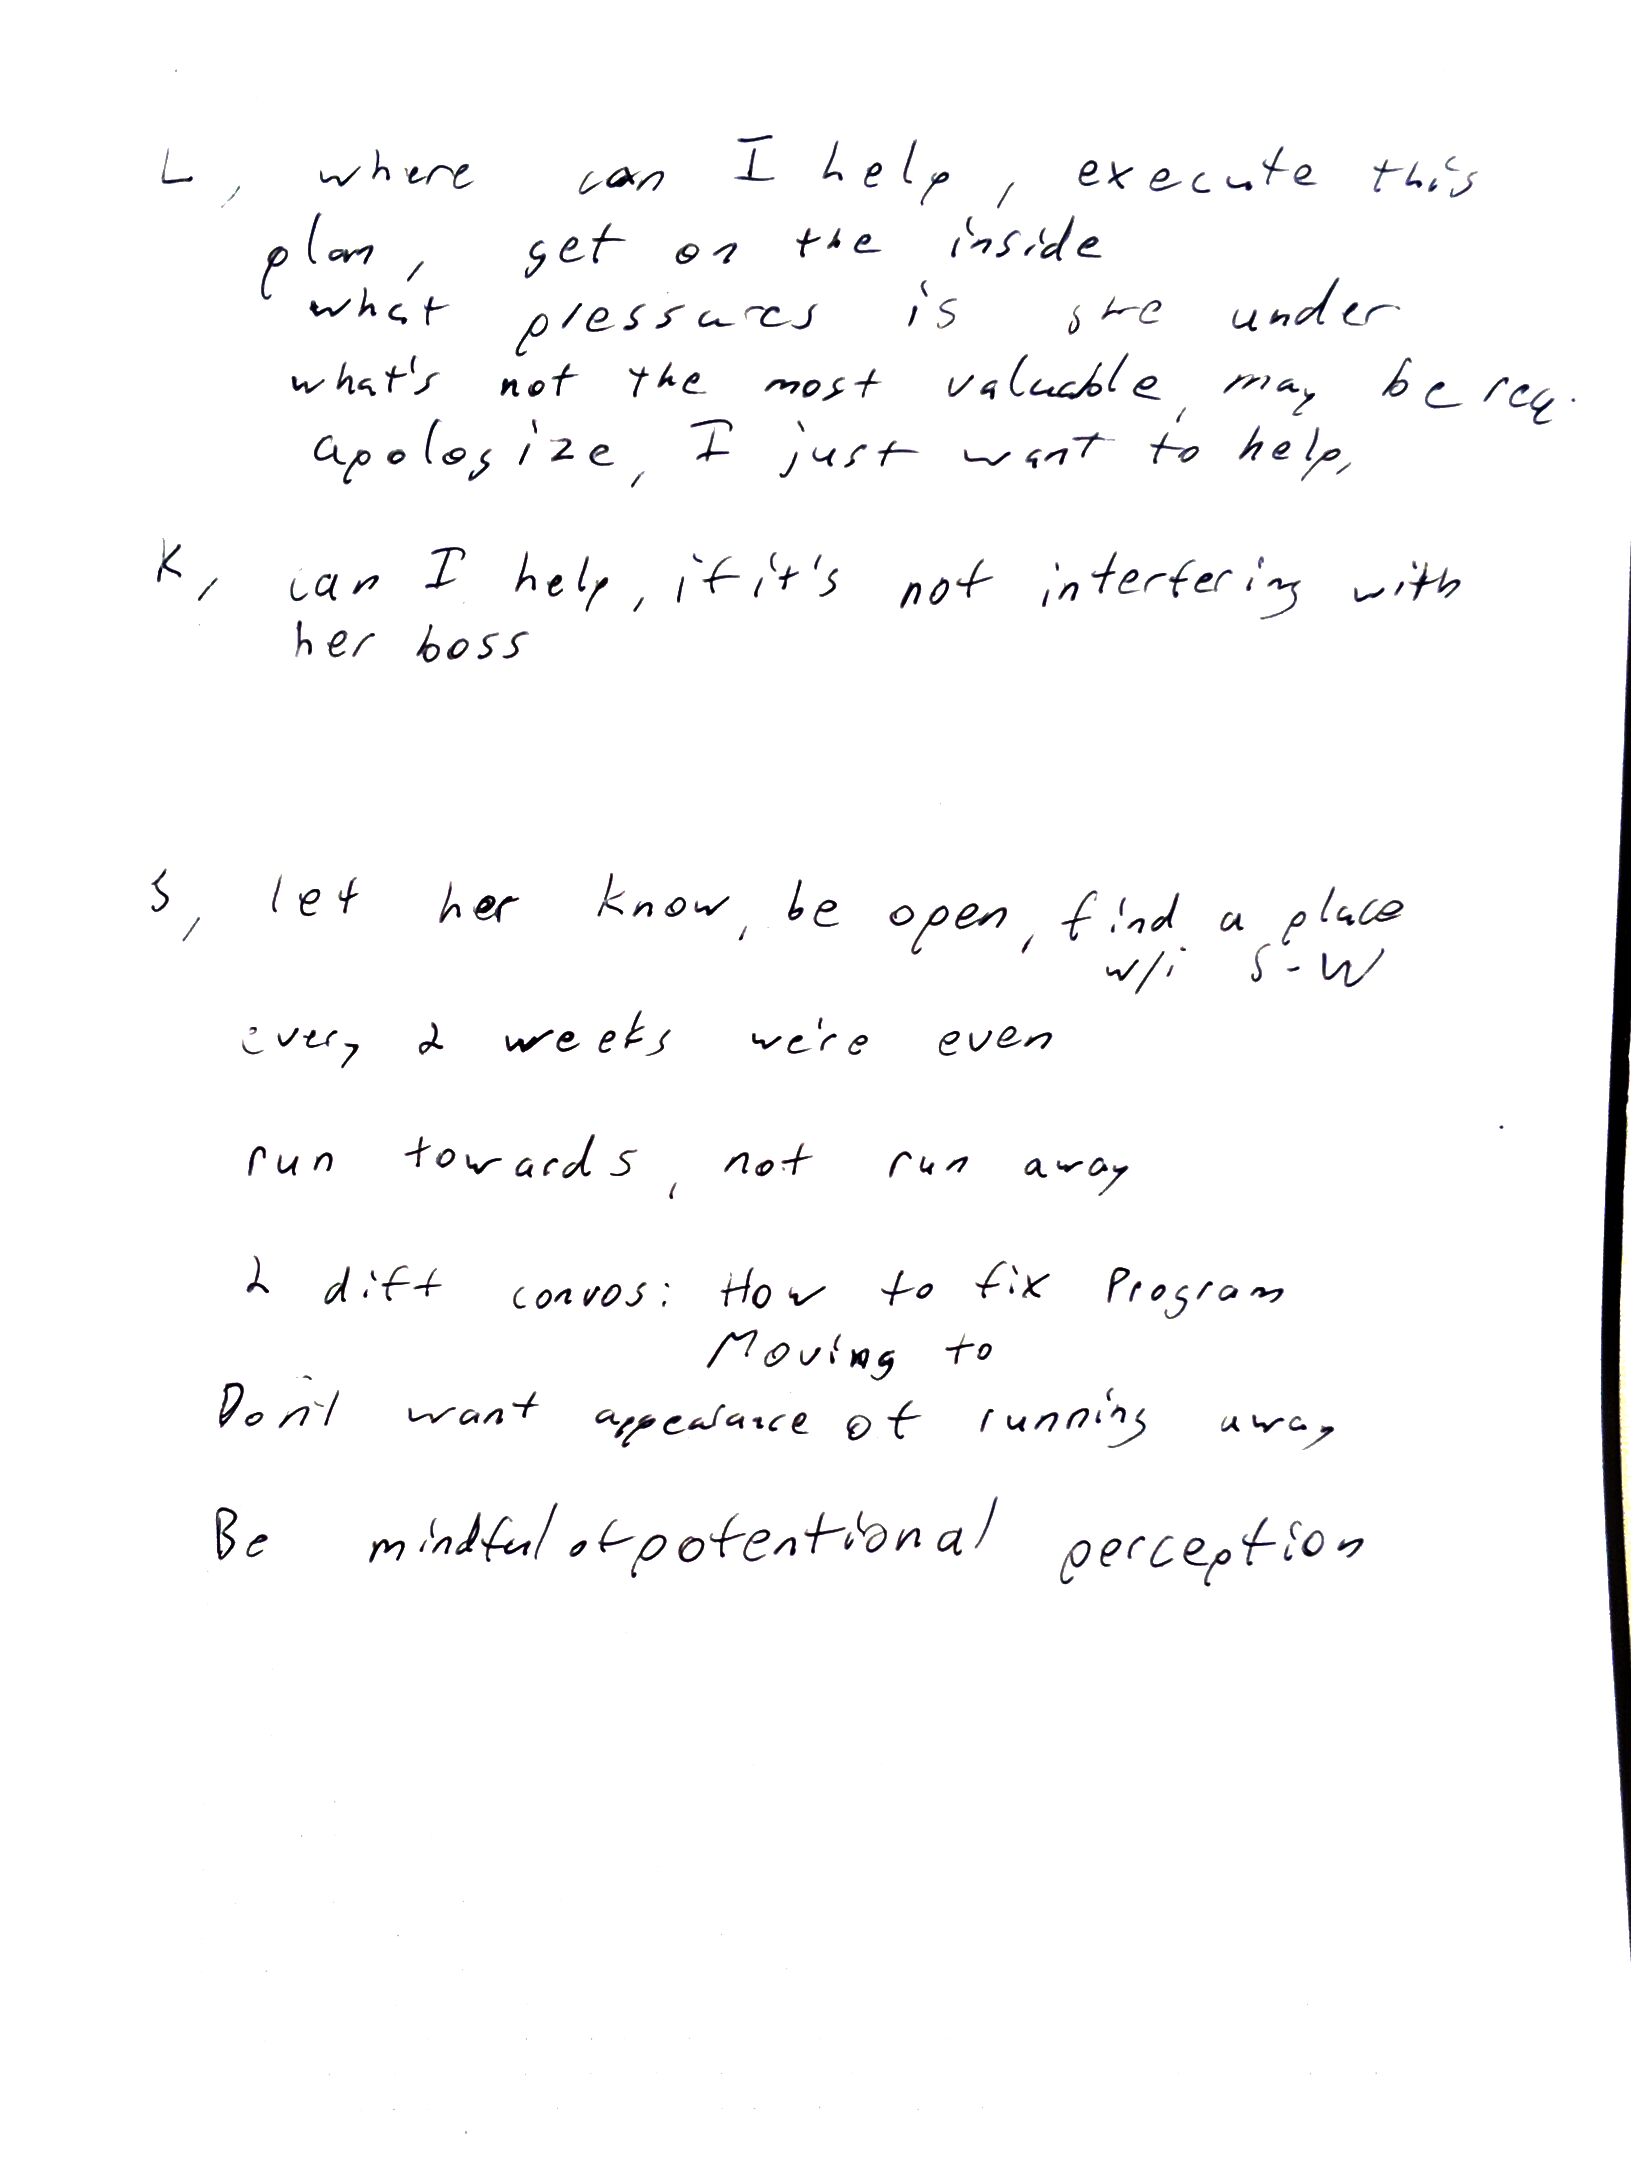 L, where can I help, execute this
plan, get on the inside
what pressures is she under
what's not the most valuable, may be req.
apologize, I just want to help,
K, can I help, if it's not interfering with
her boss
S, let her know, be open, find a place
w/i S-W
every 2 weeks we're even
run towards, not run away
2 diff convos: How to fix Program
Moving to
Don't want appearance of running away
Be mindful of potentional perception